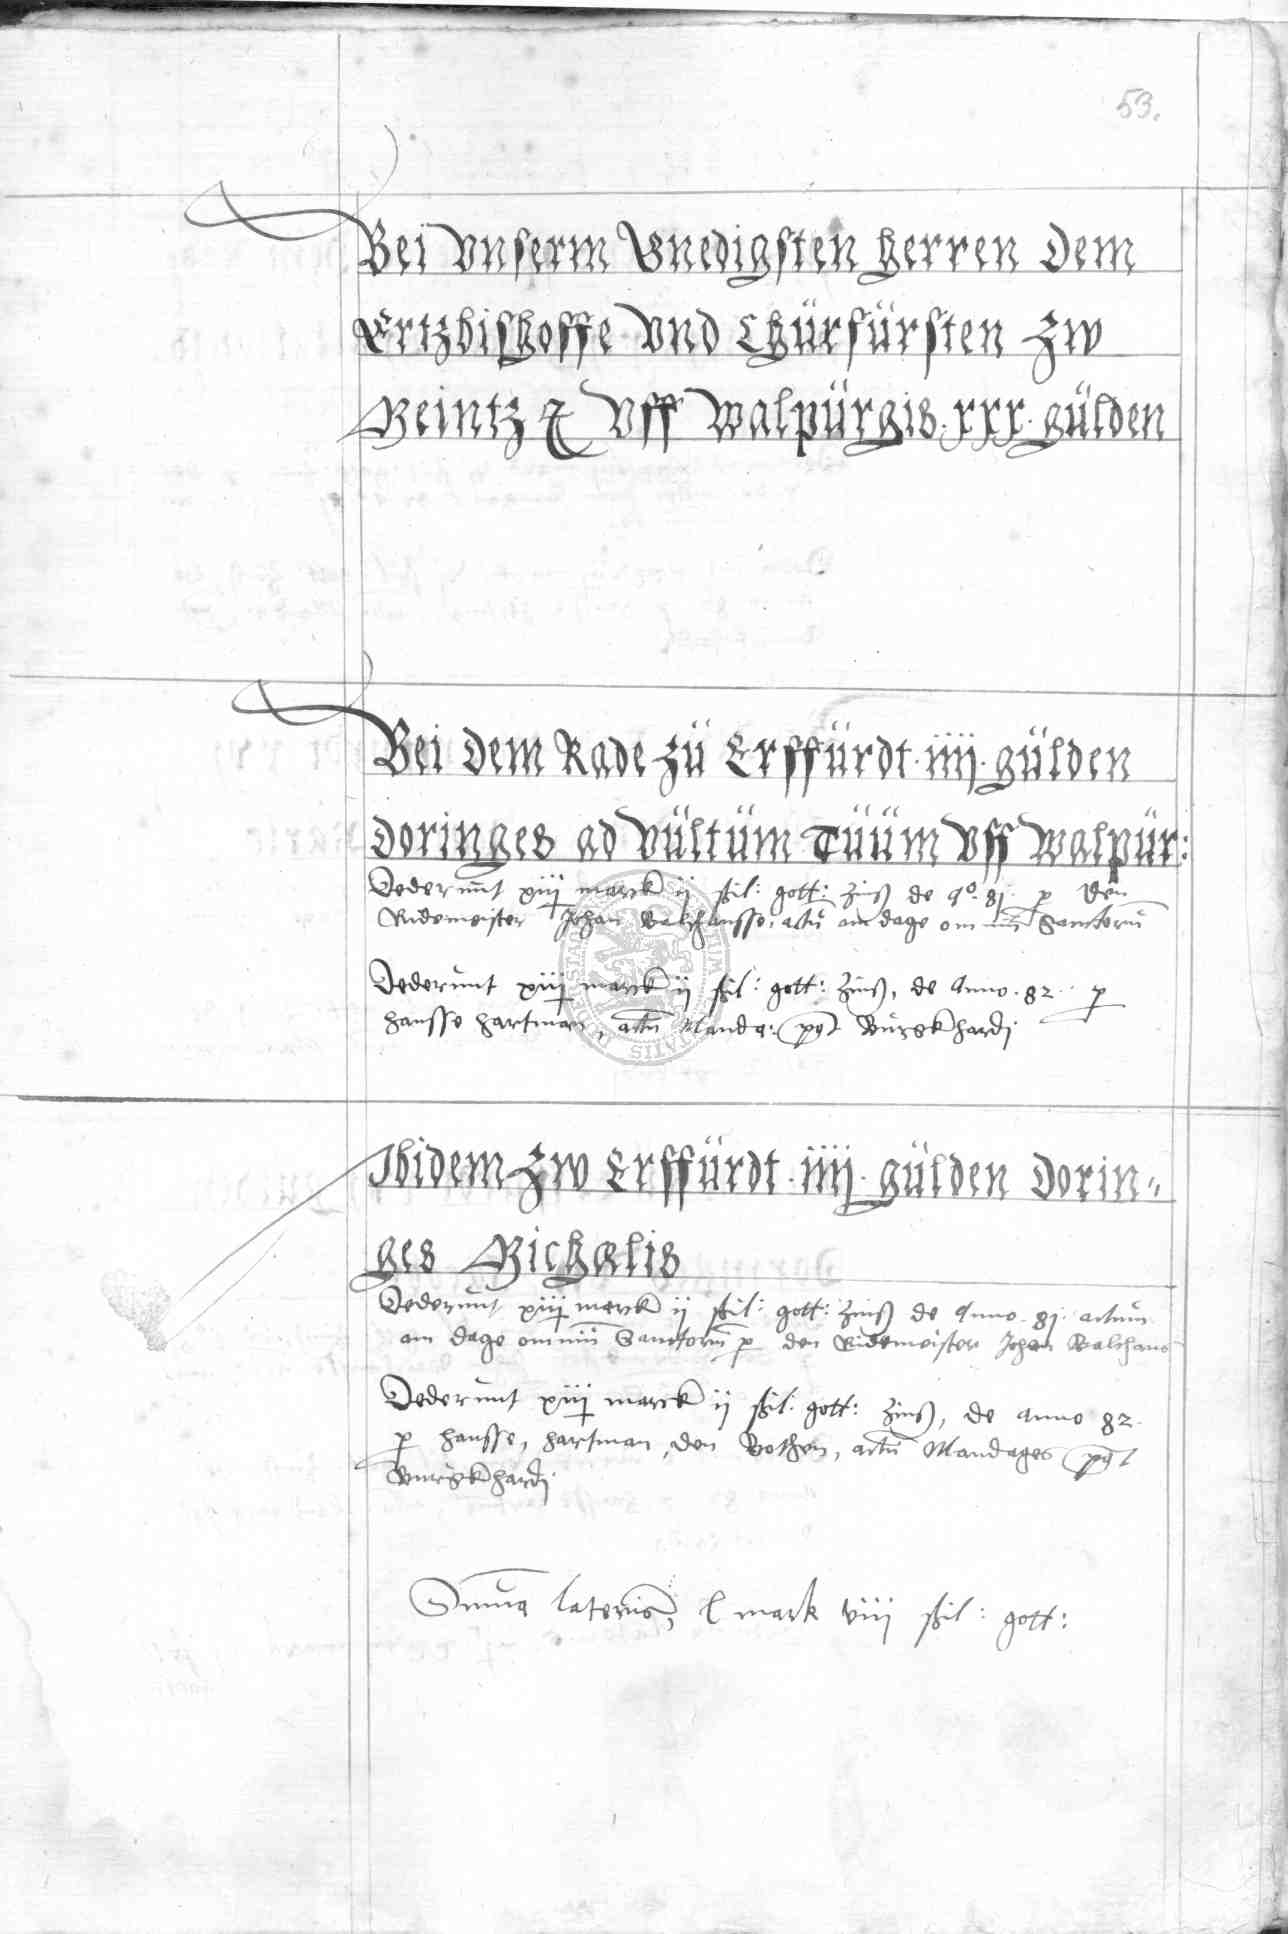 53.
Bei vnserm Gnedigsten herren dem
Ertzbishoffe vnd Chürfürsten zw
Meintz &c vff walpürgis . xxx . gülden
Bei dem Rade zü Erffürdt . iiij . gülden
doringes ad vültüm tüüm vff walpür:
Dederunt xiij marck ij ßil: gott: Zinß de ao. 81 p den
Ridemeister Johan Balthansse, actu am dage omniu Sanctoru
Dederunt xiij marck ij ßil: gott: Zinß, de Anno . 82 . p
hansse hartman, actu Manda: pt Burgkhardi
Ibidem zw Erffürdt . iiij . gülden dorin=
ges Michælis
Dederunt xiij marck ij ßil: gott: Zinß de Anno . 81 . actum
am dage omniu Sanctoru p den Ridemeister Johan Balthans
Dederunt xiij marck ij ßil: gott: Zinß, de anno 82.
p hansse, hartman, den Bothen, actu Mandages pt
Burgkhardi
Suma lateris, l mark viij ßil: gott: